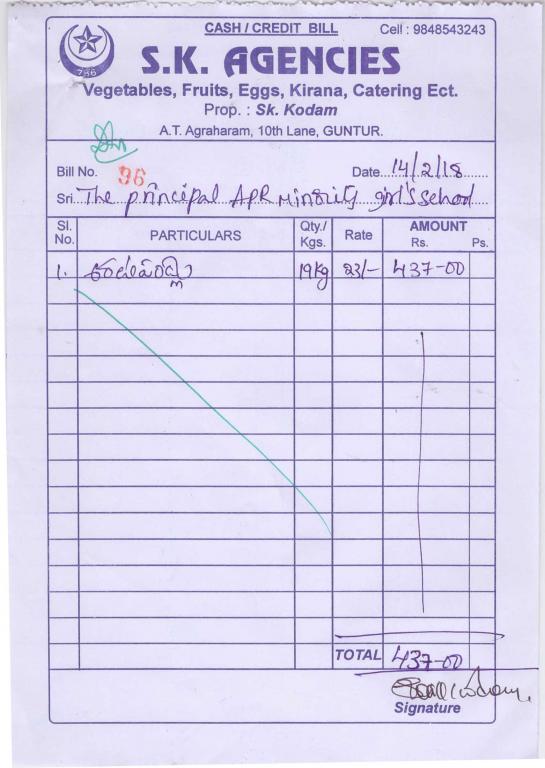 CASH / CREDIT BILL Cell : 9848543243
786
S.K. AGENCIES
Vegetables, Fruits, Eggs, Kirana, Catering Ect.
Prop. : Sk. Kodam
A.T. Agraharam, 10th Lane, GUNTUR.
Bill No. 96 Date 14/2/18
Sri. The principal APR Minority girl's School
Sl. No. PARTICULARS Qty./ Kgs. Rate AMOUNT Rs. Ps.
1. 19kg 23/- 437-00
TOTAL 437-00
Signature